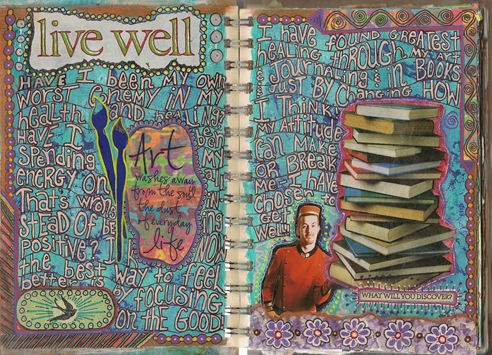 live well
HAVE I BEEN MY OWN
WORST ENEMY IN MY
health AND
HAVE I BEEN
Spending
energy ON
That's wrong IN
STEAD OF BEING
positive?
the best way to feel
better is by focusing
ON THE GOOD!
Art
washes away
from the soul
the dust of
everyday
life
I HAVE FOUND GREATEST
HEALING THROUGH MY ART
JOURNALING IN BOOKS
JUST BY CHANGING HOW
I THINK
MY Attitude
CAN MAKE
OR BREAK
ME. I HAVE
CHOSEN TO
GET
WELL!
WHAT WILL YOU DISCOVER?